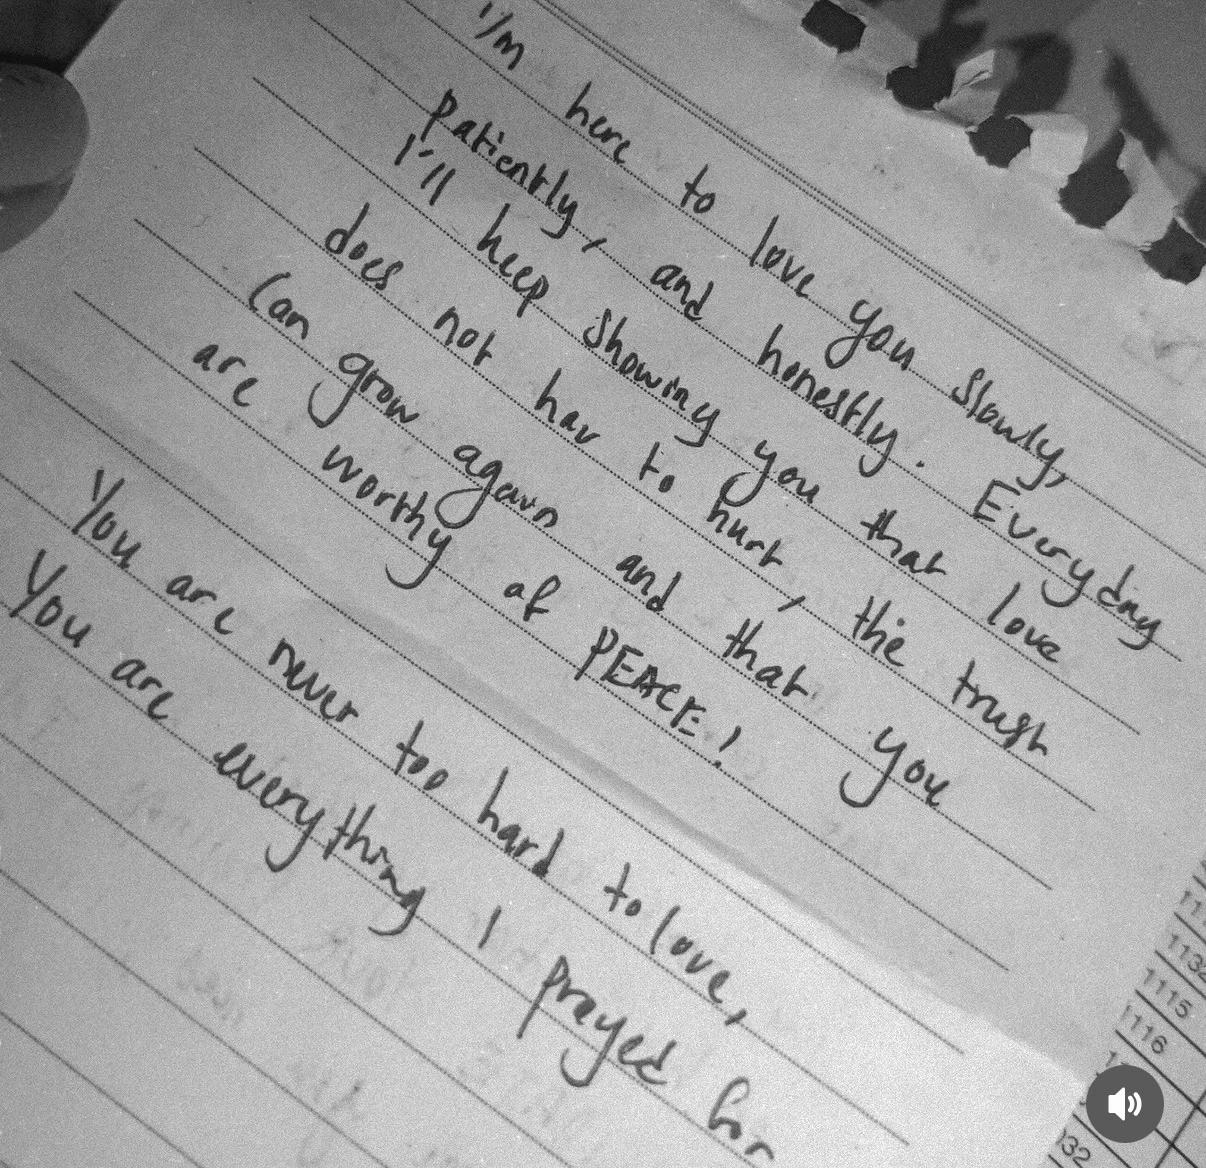 I'm here to love you slowly,
patiently, and honestly. Everyday
I'll keep showing you that love
does not hav to hurt, the trust
can grow again and that you
are worthy of PEACE!
You are never too hard to love,
You are everything I prayed for
1132
1115
1116